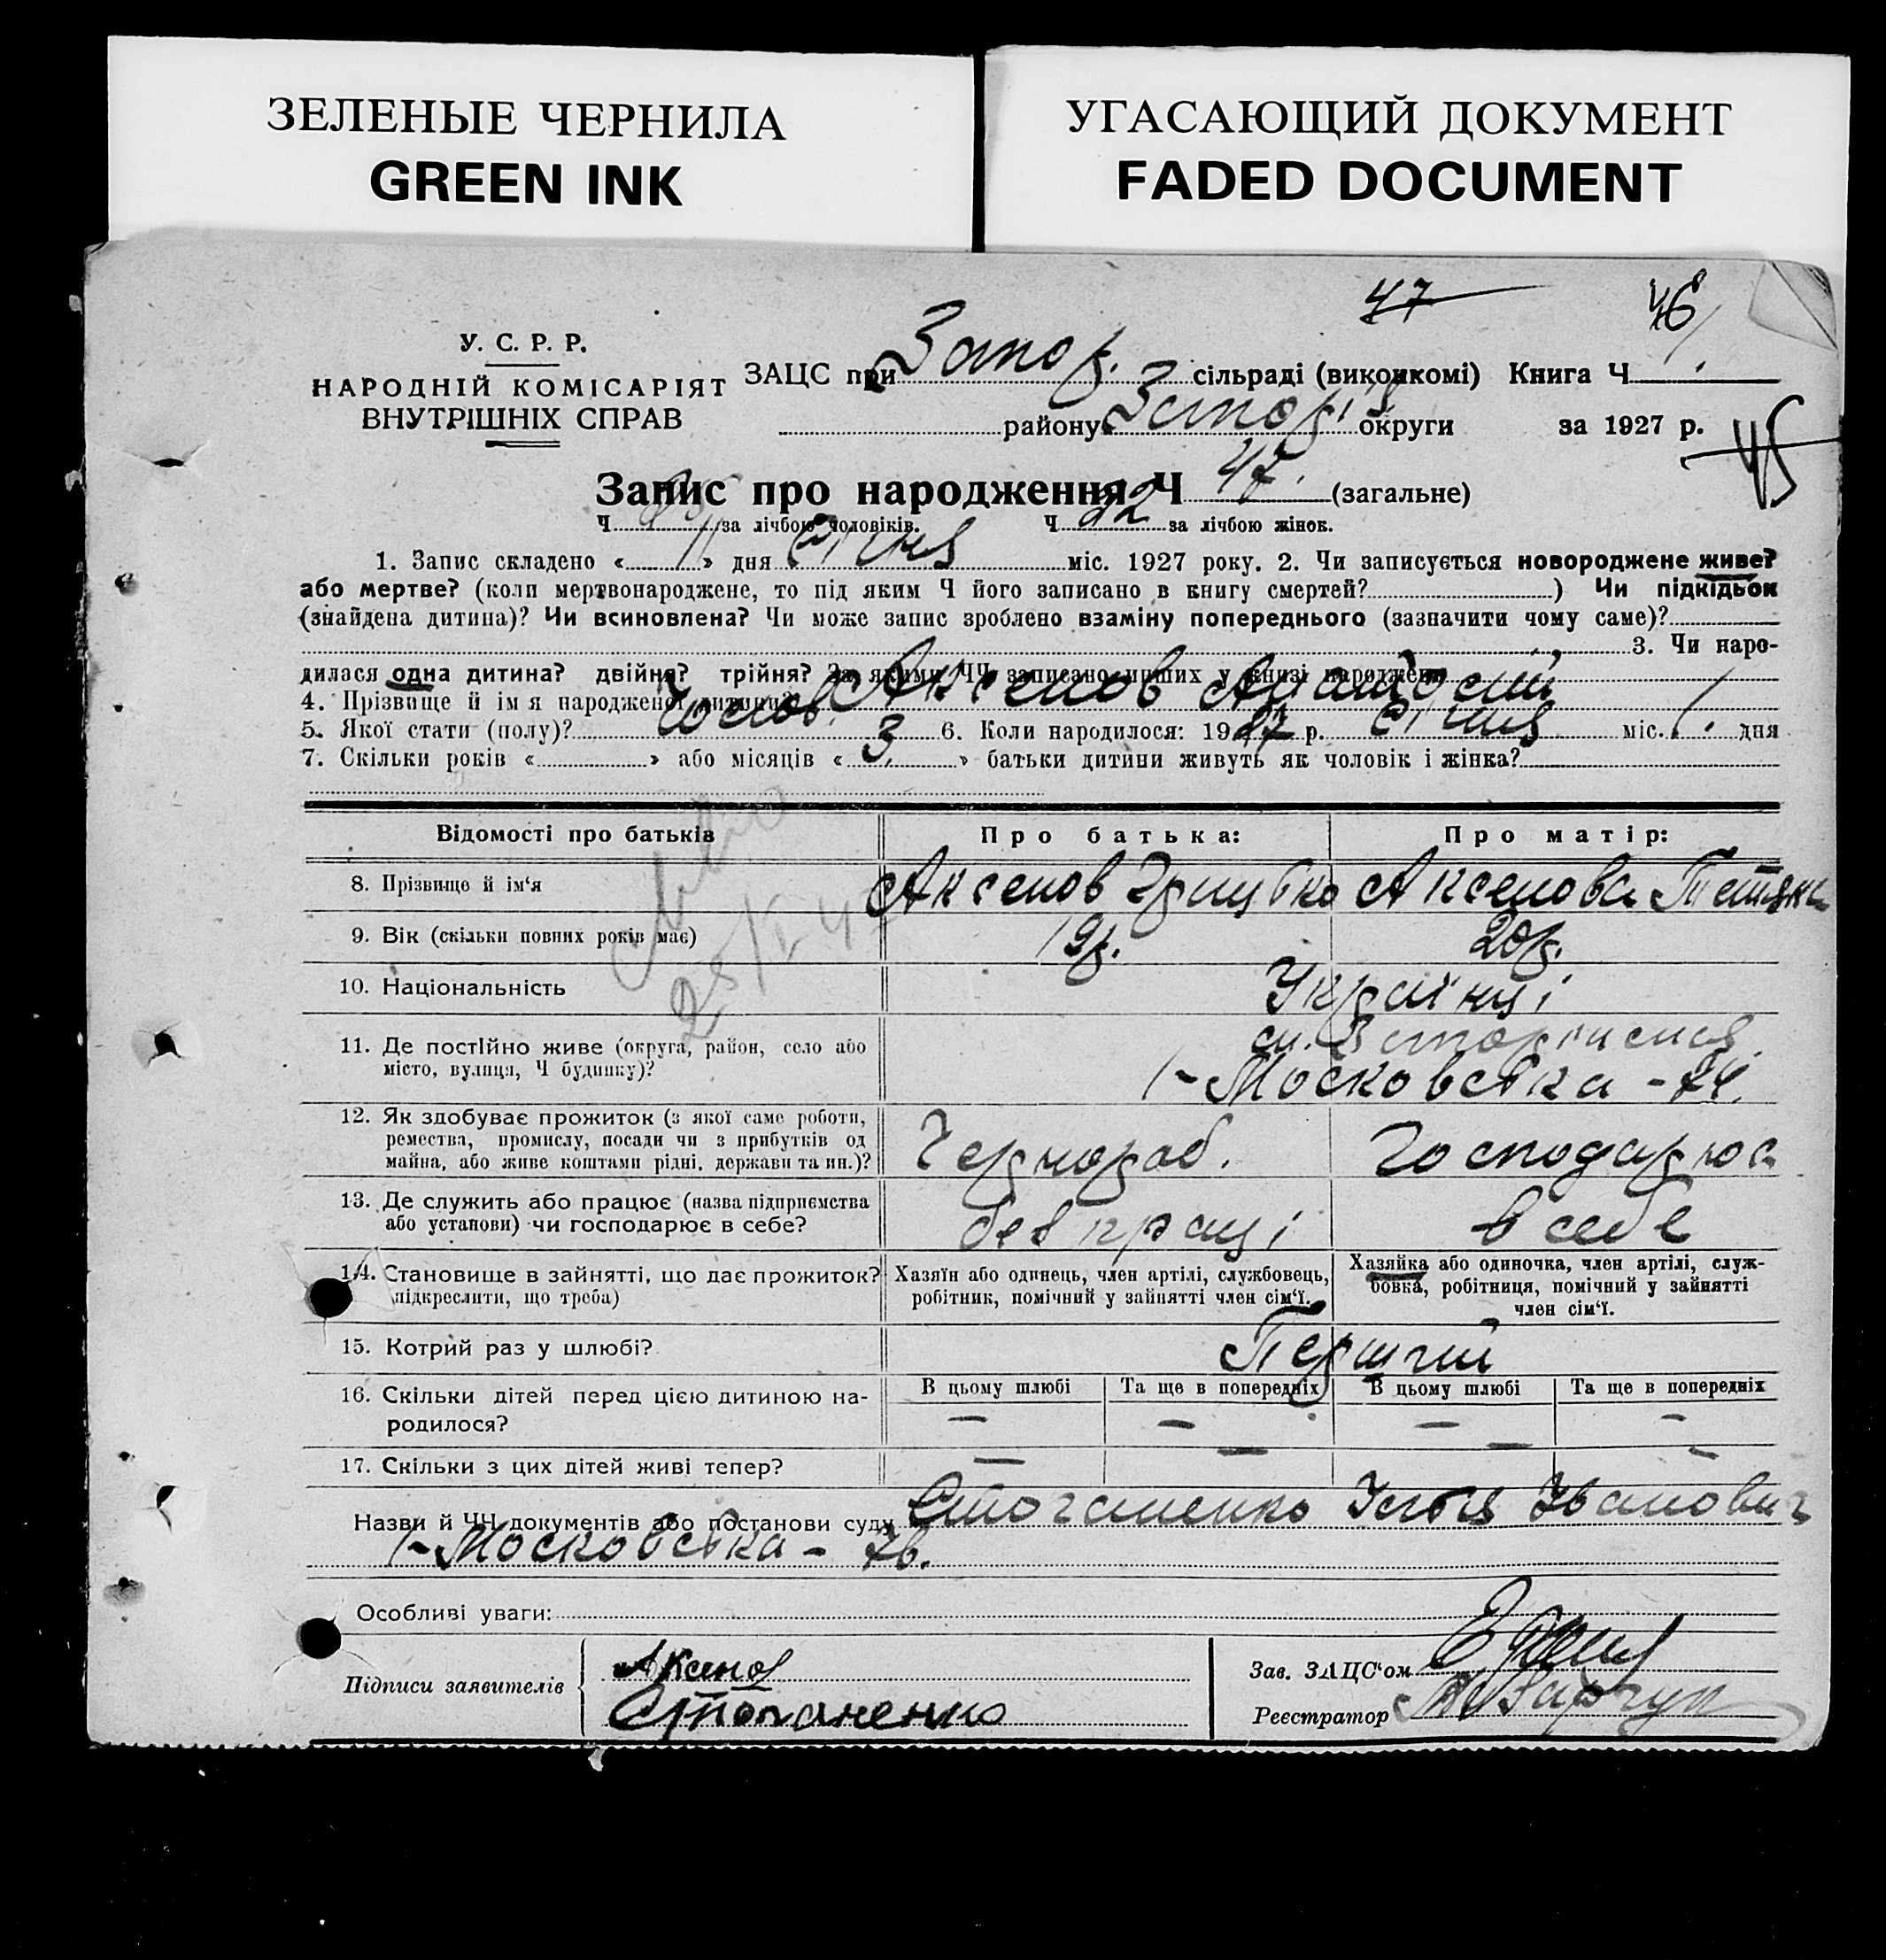 ЗЕЛЕНЫЕ ЧЕРНИЛА
GREEN INK
УГАСАЮЩИЙ ДОКУМЕНТ
FADED DOCUMENT
47
46
У. С. Р. Р.
НАРОДНІЙ КОМІСАРІЯТ
ВНУТРІШНІХ СПРАВ
ЗАЦС при Запор. сільраді (виконкомі) Книга Ч 1.
району Запоріз округи за 1927 р.
45
Запис про народження Ч 47. (загальне)
Ч за лічбою чоловіків. Ч 22 за лічбою жінок.
1. Запис складено « 11 » дня січня міс. 1927 року. 2. Чи записується новороджене живе?
або мертве? (коли мертвонароджене, то під яким Ч його записано в книгу смертей? ) Чи підкідьок
(знайдена дитина)? Чи всиновлена? Чи може запис зроблено взаміну попереднього (зазначити чому саме)?
3. Чи наро-
дилася одна дитина? двійня? трійня? За якими ЧЧ записано инших у книзі народжень
4. Прізвище й ім я народженої дитини? Аксенов
5. Якої стати (полу)? Чолов. 6. Коли народилося: 1927 р. січня міс. 1. дня
7. Скільки років « » або місяців « 3 » батьки дитини живуть як чоловік і жінка?
Відомості про батьків
Про батька:
Про матір:
8. Прізвище й ім‘я Аксенов Грицько Аксенова Тетяна
9. Вік (скільки повних років має) 19р. 20р.
10. Національність Українці
11. Де постійно живе (округа, район, село або
місто, вулиця, Ч будинку)?
м. Запоріжжя
1-Московська - 74.
12. Як здобуває прожиток (з якої саме роботи,
ремества, промислу, посади чи з прибутків од
майна, або живе коштами рідні, держави та ин.)?
Чернораб. Господарюа
13. Де служить або працює (назва підприємства
або установи) чи господарює в себе?
без праці в себе
14. Становище в зайнятті, що дає прожиток?
(підкреслити, що треба)
Хазяїн або одинець, член артілі, службовець,
робітник, помічний у зайнятті член сім‘ї.
Хазяйка або одиночка, член артілі, служ-
бовка, робітниця, помічний у зайнятті
член сім‘ї.
15. Котрий раз у шлюбі? Перший
16. Скільки дітей перед цією дитиною на-
родилося?
В цьому шлюбі Та ще в попередніх В цьому шлюбі Та ще в попередніх
— — — —
17. Скільки з цих дітей живі тепер? — — — —
Назви й ЧЧ документів або постанови суду Стоганенко Іванович
1-Московська - 76.
Особливі уваги:
Підписи заявителів
Аксенов
Стоганенко
Зав. ЗАЦС‘ом
Реєстратор